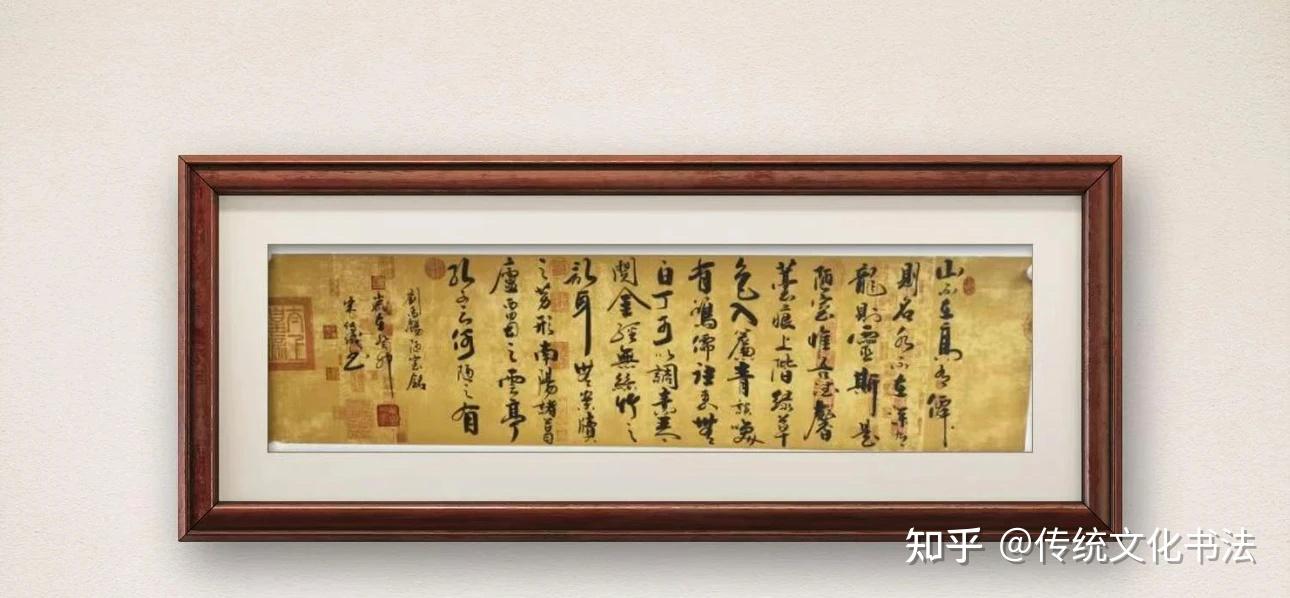 山不在高有僊
則名水不在深有
龍則靈斯是
陋室惟吾德馨
苔痕上階緑草
色入簾青談咲
有鴻儒往来無
白丁可以調素琴
閱金經無絲竹之
乱耳無案牘
之勞形南陽諸葛
廬西蜀之雲亭
孔子云何陋之有
劉禹錫陋室銘
歲在癸卯
知乎 @传统文化书法